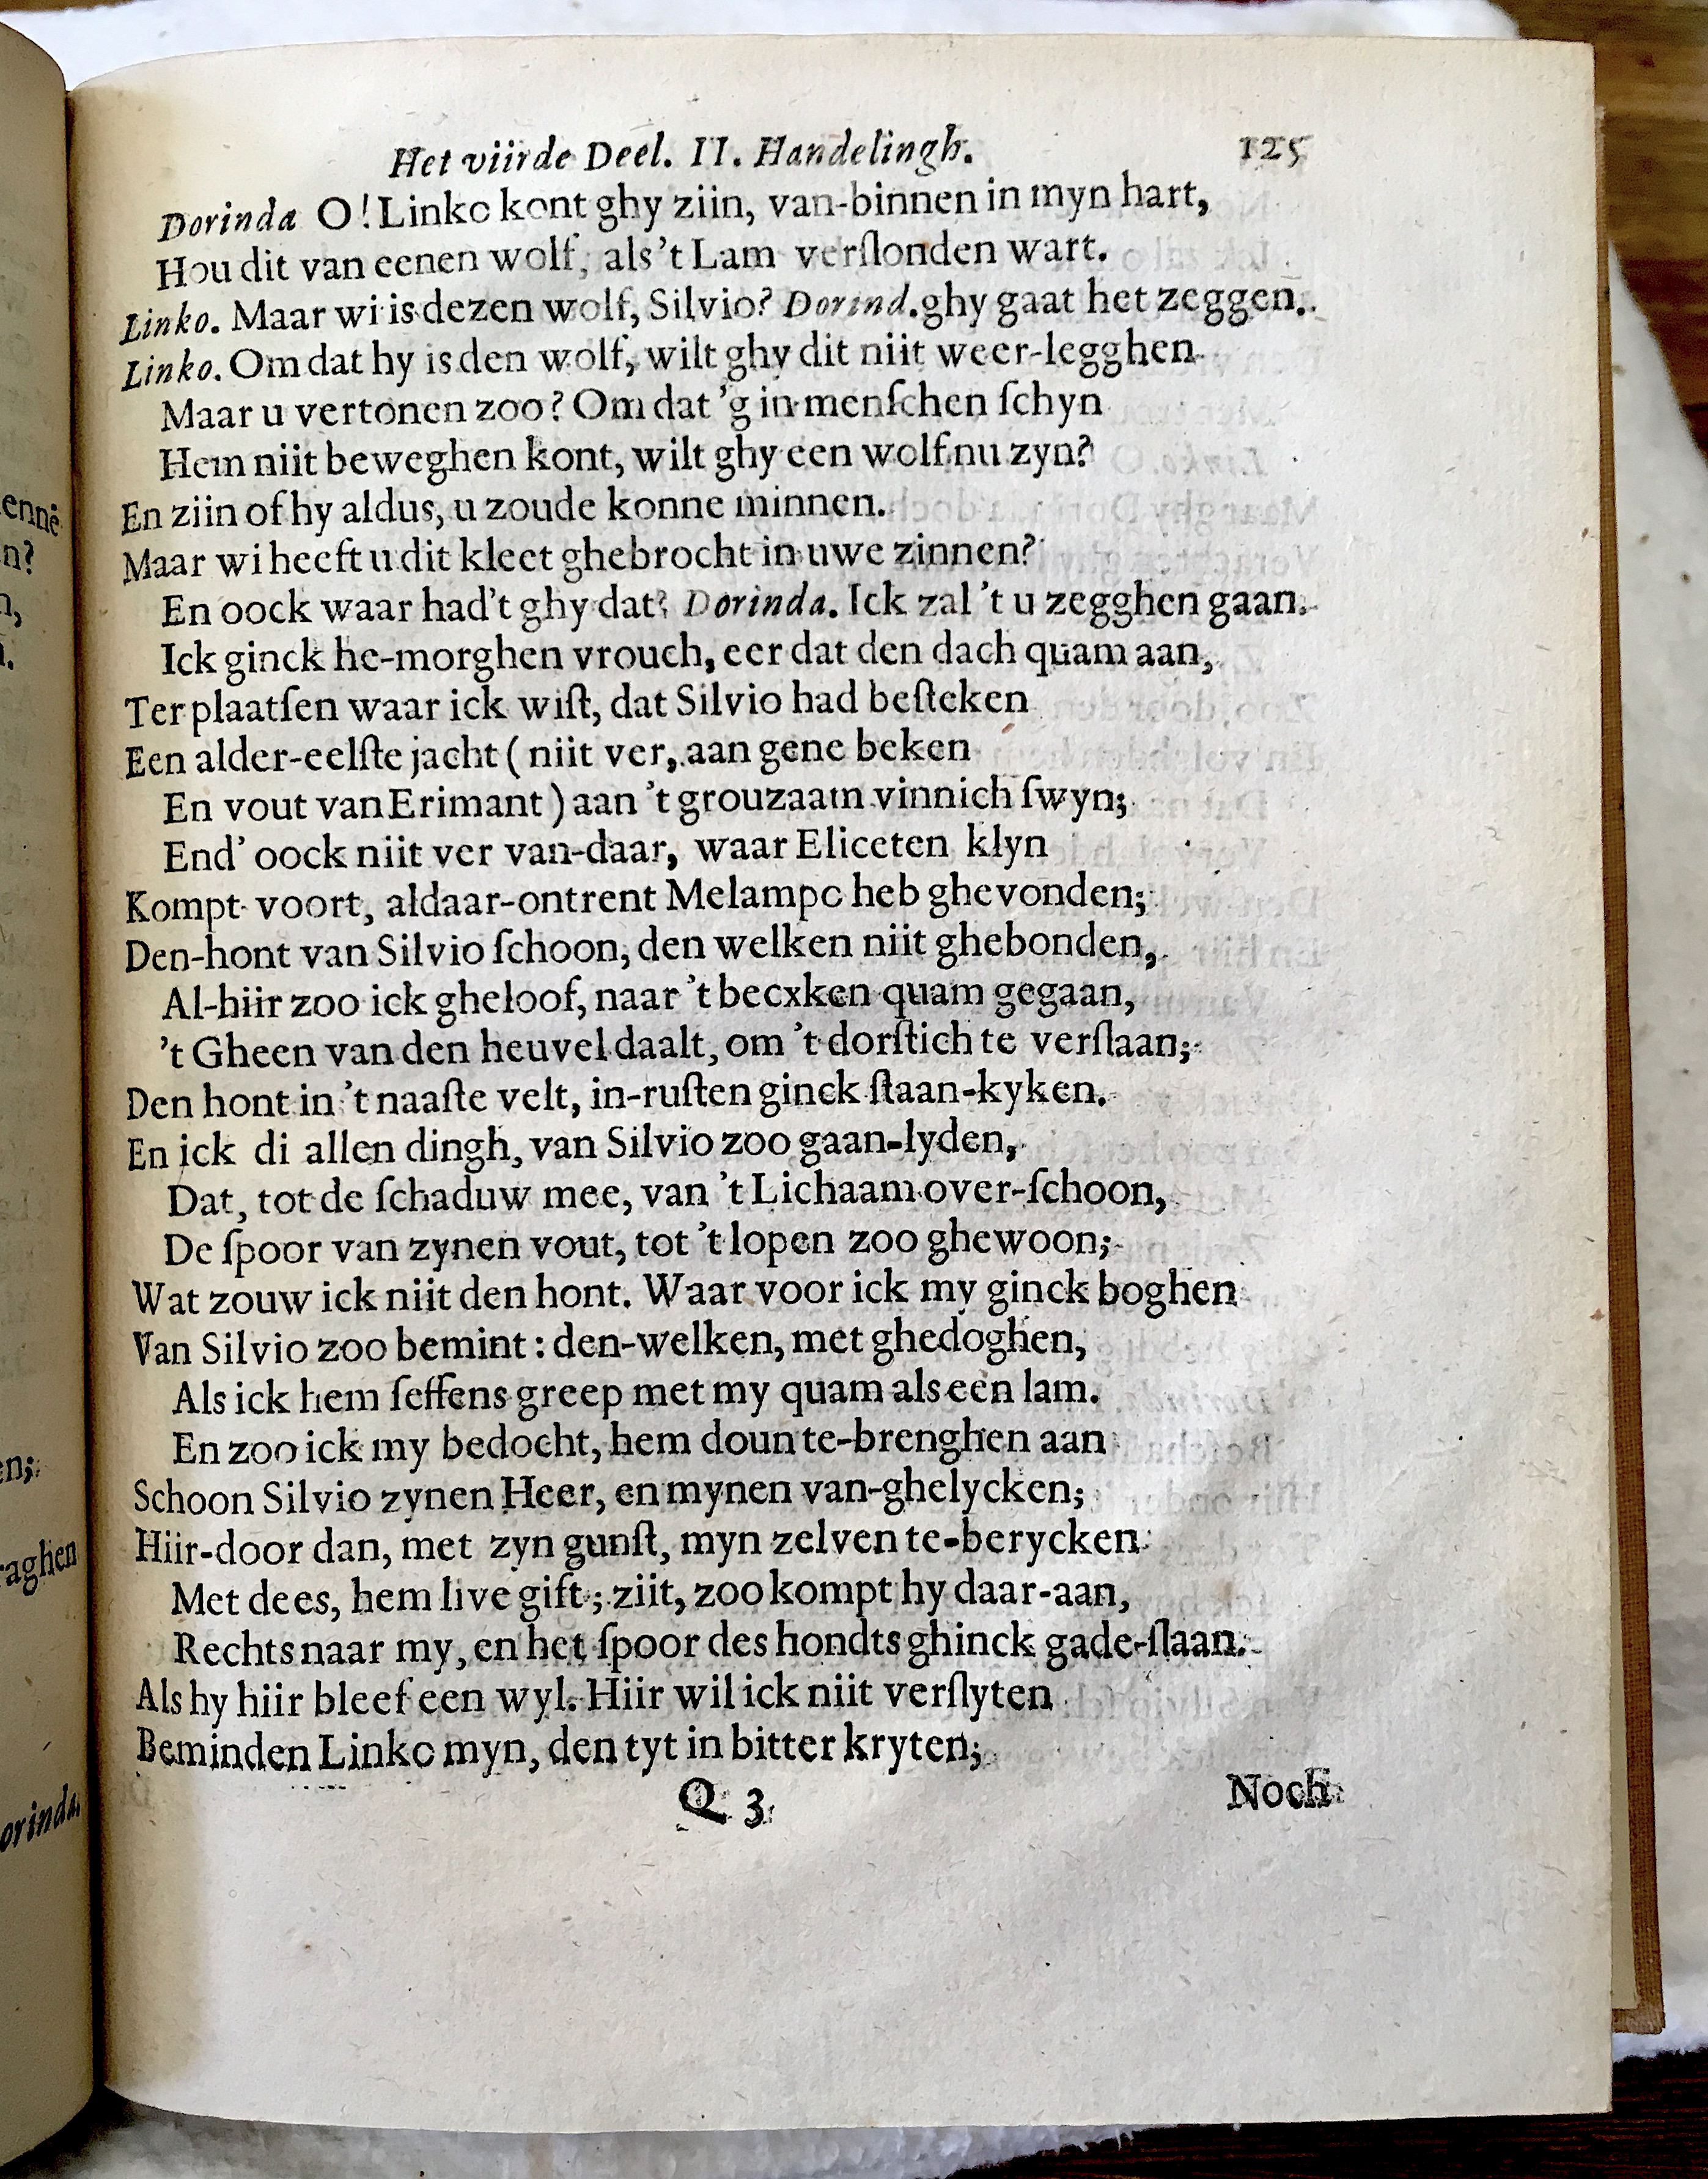 enně
n?
n,
n.
en;
raghen
orinda.
Het viirde Deel. II. Handelingh. 125
Dorinda O! Linko kont ghy ziin, van-binnen in myn hart,
Hou dit van eenen wolf, als 't Lam verſlonden wart.
Linko. Maar wi is dezen wolf, Silvio? Dorind. ghy gaat het zeggen.
Linko. Om dat hy is den wolf, wilt ghy dit niit weer-legghen
Maar u vertonen zoo? Om dat 'g in menſchen ſchyn
Hem niit beweghen kont, wilt ghy een wolf nu zyn?
En ziin of hy aldus, u zoude konne minnen.
Maar wi heeft u dit kleet ghebrocht in uwe zinnen?
En oock waar had't ghy dat? Dorinda. Ick zal 't u zegghen gaan.
Ick ginck he-morghen vrouch, eer dat den dach quam aan,
Ter plaatſen waar ick wiſt, dat Silvio had beſteken
Een alder-eelſte jacht ( niit ver, aan gene beken
En vout van Erimant ) aan 't grouzaam vinnich ſwyn;
End' oock niit ver van-daar, waar Eliceten klyn
Kompt voort, aldaar-ontrent Melampo heb ghevonden;
Den-hont van Silvio ſchoon, den welken niit ghebonden,
Al-hiir zoo ick gheloof, naar 't becxken quam gegaan,
't Gheen van den heuvel daalt, om 't dorſtich te verſlaan;
Den hont in 't naaſte velt, in-ruſten ginck ſtaan-kyken.
En ick di allen dingh, van Silvio zoo gaan-lyden,
Dat, tot de ſchaduw mee, van 't Lichaam over-ſchoon,
De ſpoor van zynen vout, tot 't lopen zoo ghewoon;
Wat zouw ick niit den hont. Waar voor ick my ginck boghen
Van Silvio zoo bemint: den-welken, met ghedoghen,
Als ick hem ſeffens greep met my quam als een lam.
En zoo ick my bedocht, hem doun te-brenghen aan
Schoon Silvio zynen Heer, en mynen van-ghelycken;
Hiir-door dan, met zyn gunſt, myn zelven te-berycken
Met dees, hem live gift; ziit, zoo kompt hy daar-aan,
Rechts naar my, en het ſpoor des hondts ghinck gade-ſlaan.
Als hy hiir bleef een wyl. Hiir wil ick niit verſlyten
Beminden Linko myn, den tyt in bitter kryten;
Q 3 Noch